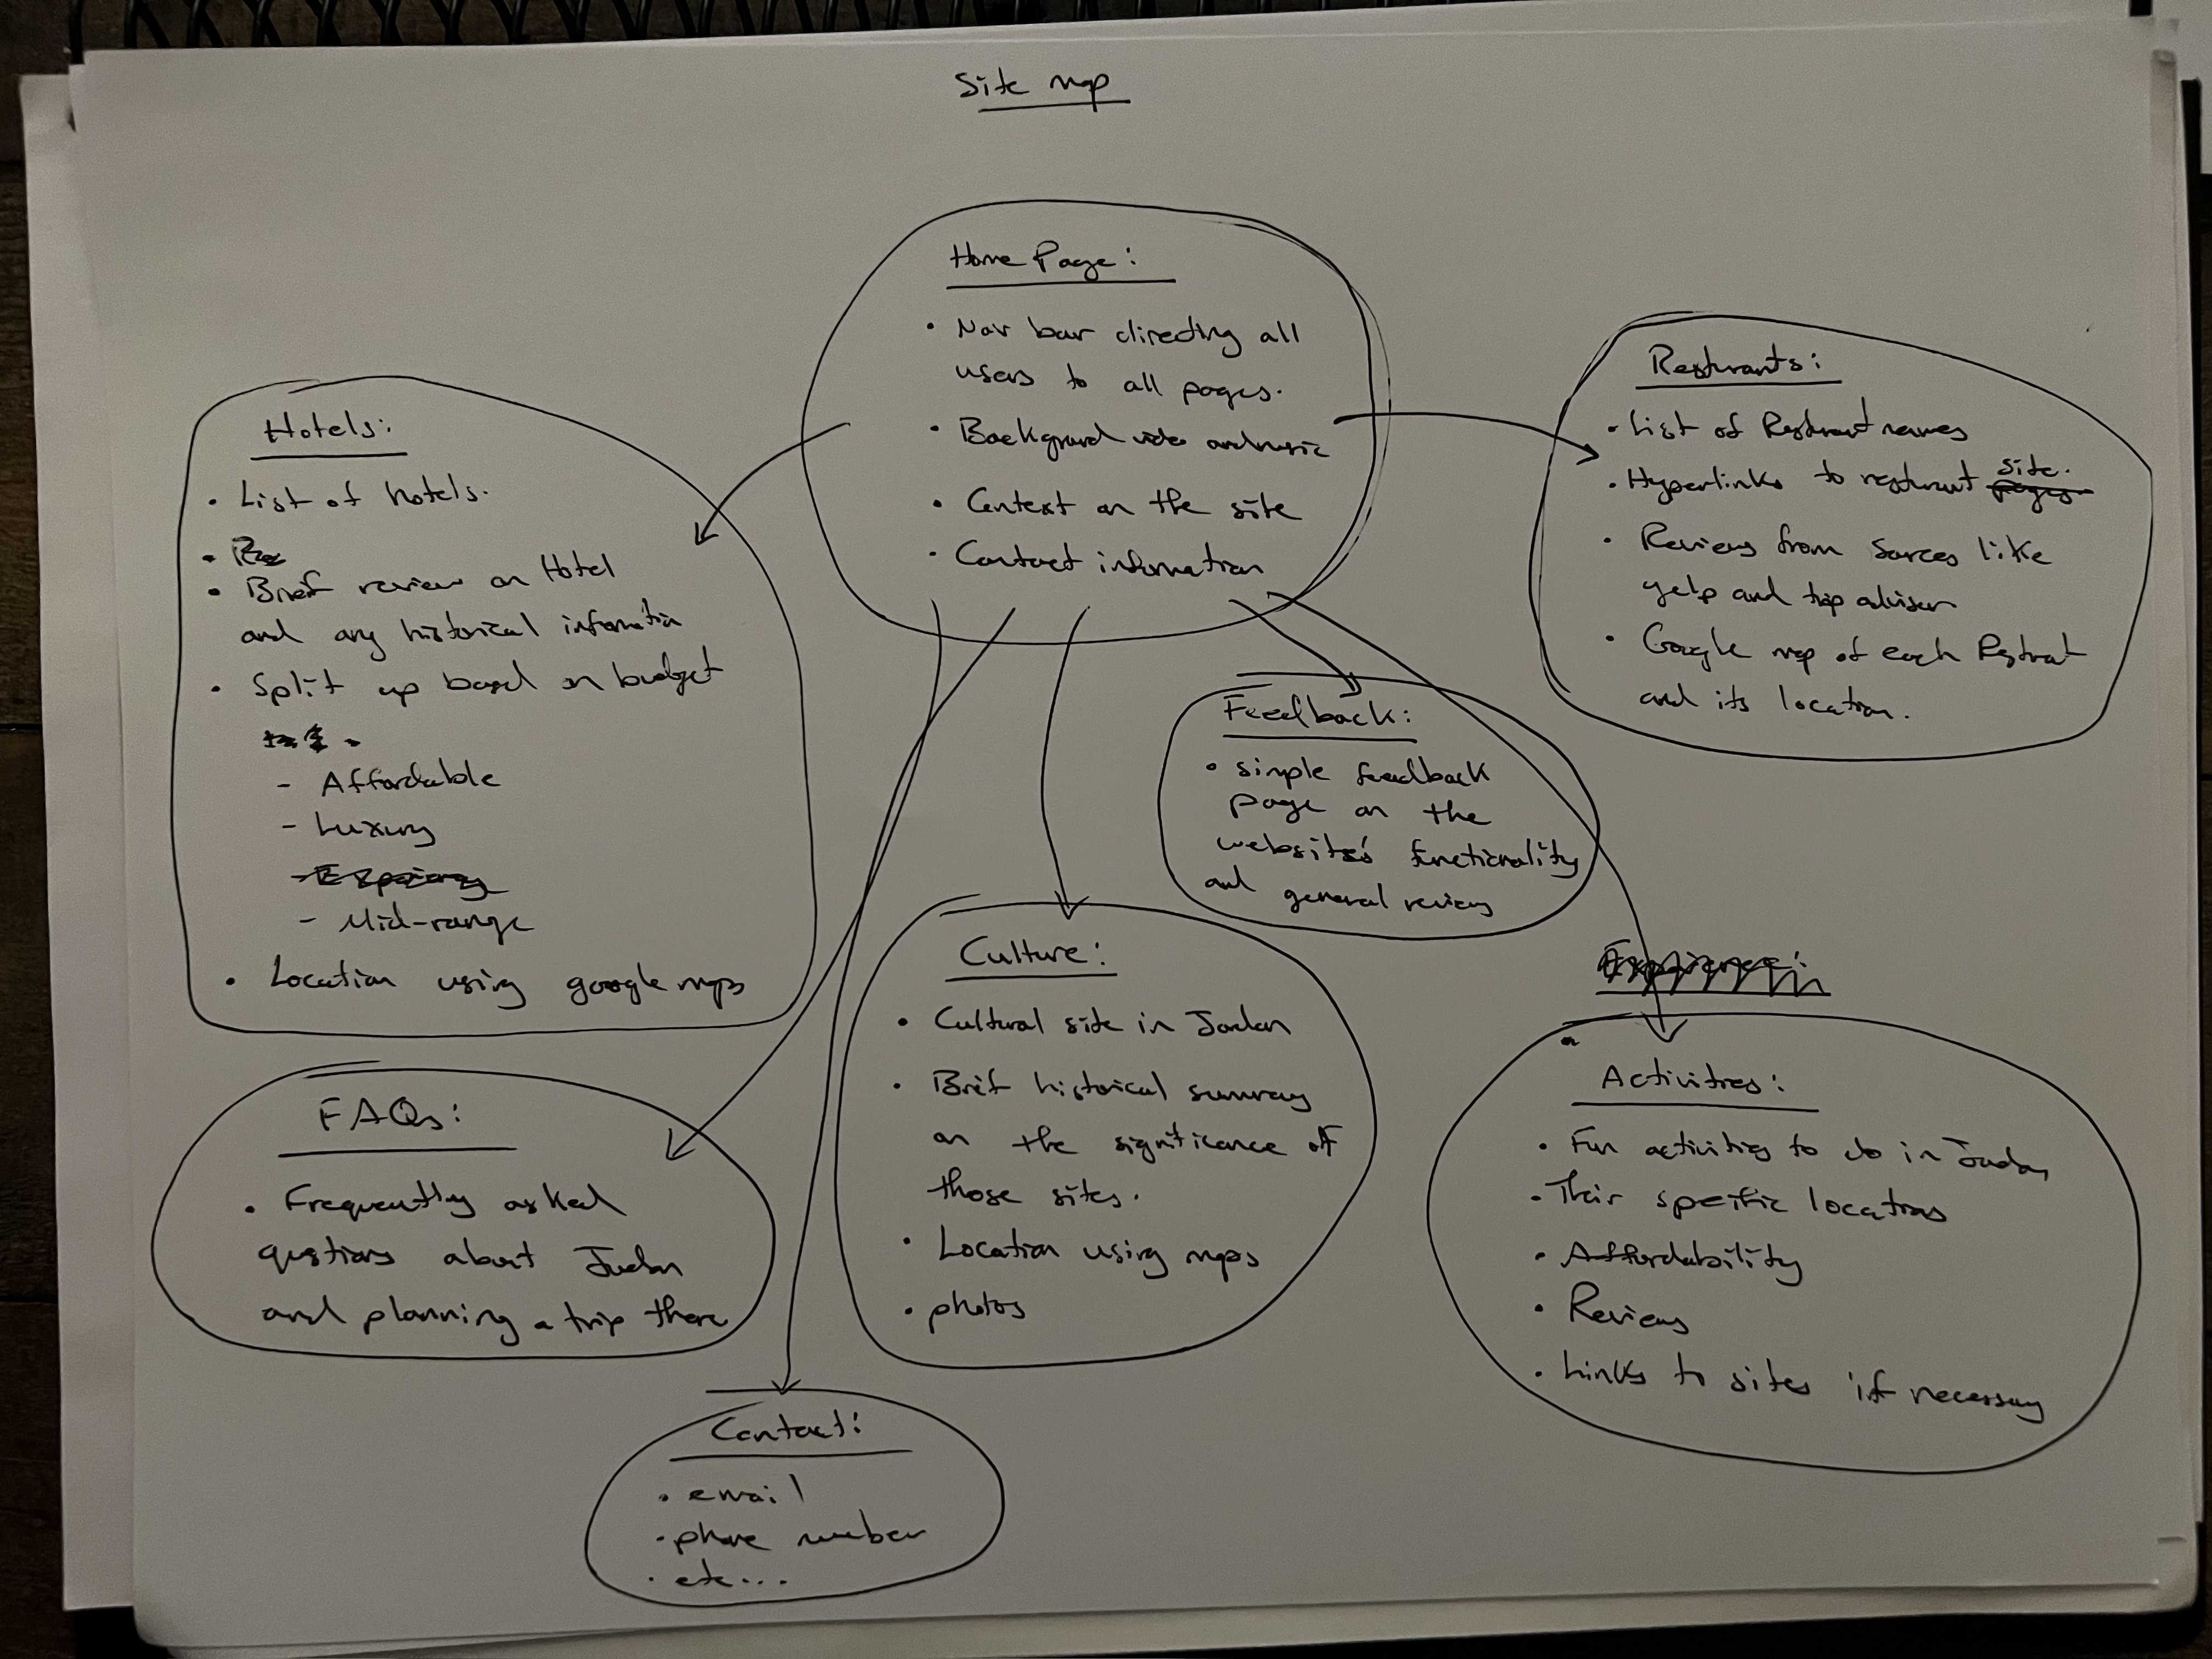 Site map
Home Page:
• Nav bar directing all
users to all pages.
• Background video and music
• Context on the site
• Contact information
Hotels:
• List of hotels.
• Brief review on Hotel
and any historical information
• Split up based on budget
- Affordable
- Luxury
- Mid-range
• Location using google maps
Restrants:
• List of Restrant names
• Hyperlinks to restrant site.
pages
• Reviews from sarces like
yelp and trip adviser
• Google map of each Restrat
and its location.
Feedback:
• simple feedback
page on the
website's functionality
and general reviews
Culture:
• Cultural site in Jordan
• Brief historical summary
on the significance of
those sites.
• Location using maps
• photos
Experience:
Activities:
• Fun activities to do in Jordan
• Their specific locations
• Affordability
• Reviews
• Links to sites if necessary
FAQs:
• Frequently asked
qustions about Jordan
and planning a trip there
Contact:
• email
• phone number
• etc...